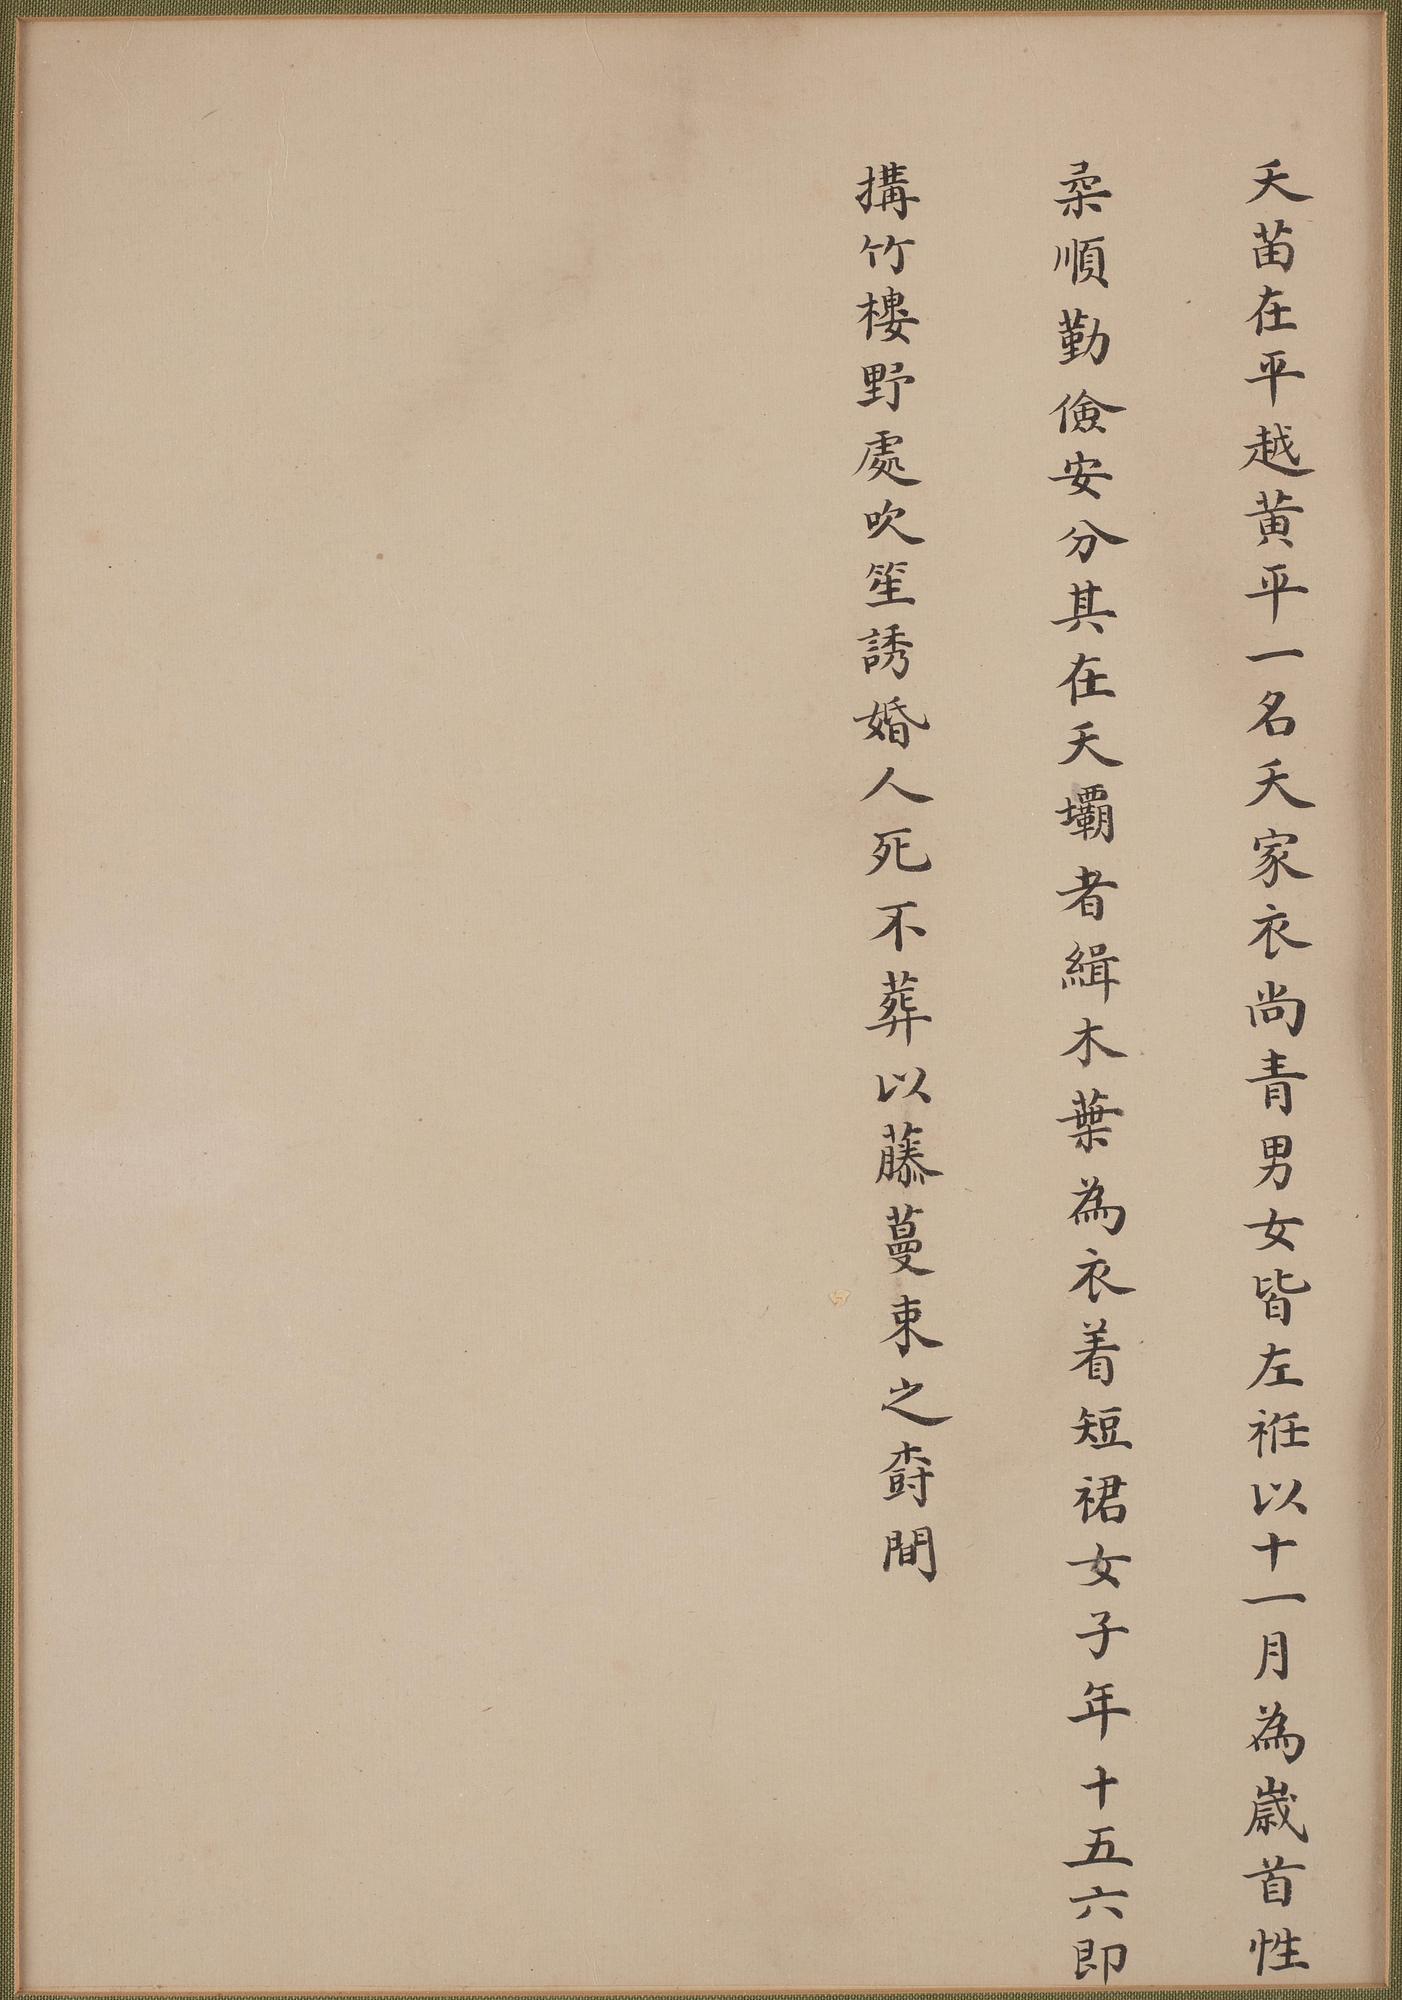 夭苗在平越黄平一名夭家衣尚青男女皆左袵以十一月為歳首性
柔順勤儉安分其在夭壩者緝木葉為衣着短裙女子年十五六即
搆竹樓野處吹笙誘婚人死不葬以藤蔓束之樹間